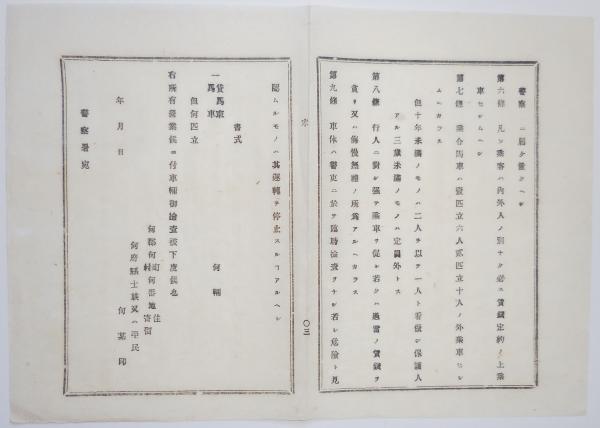 警察ニ届ケ置クヘシ
第六條 凡ソ乘客ハ内外人ノ別ナク必ス賃錢定約ノ上乘
車セシムヘシ
第七條 乘合馬車ハ壹匹立六人貳匹立十人ノ外乘車セシ
ムヘカラス
但十年未滿ノモノハ二人ヲ以テ一人ト看做シ保護人
アル三歲未滿ノモノハ定員外トス
第八條 行人ニ對シ强テ乘車ヲ促シ若クハ過當ノ賃錢ヲ
貪リ又ハ侮慢無禮ノ所爲アルヘカラス
第九條 車体ハ警吏ニ於テ臨時檢査ヲナシ若シ危險ト見
〇三
認ムルモノハ其運轉ヲ停止スルコアルヘシ
書式
一貨馬車 何輛
馬車
但何匹立
右所有營業候ニ付車輛御檢査被下度候也
何郡何町何番地住
村 寄留
何府縣士族又ハ平民
何某印
年月日
警察署宛